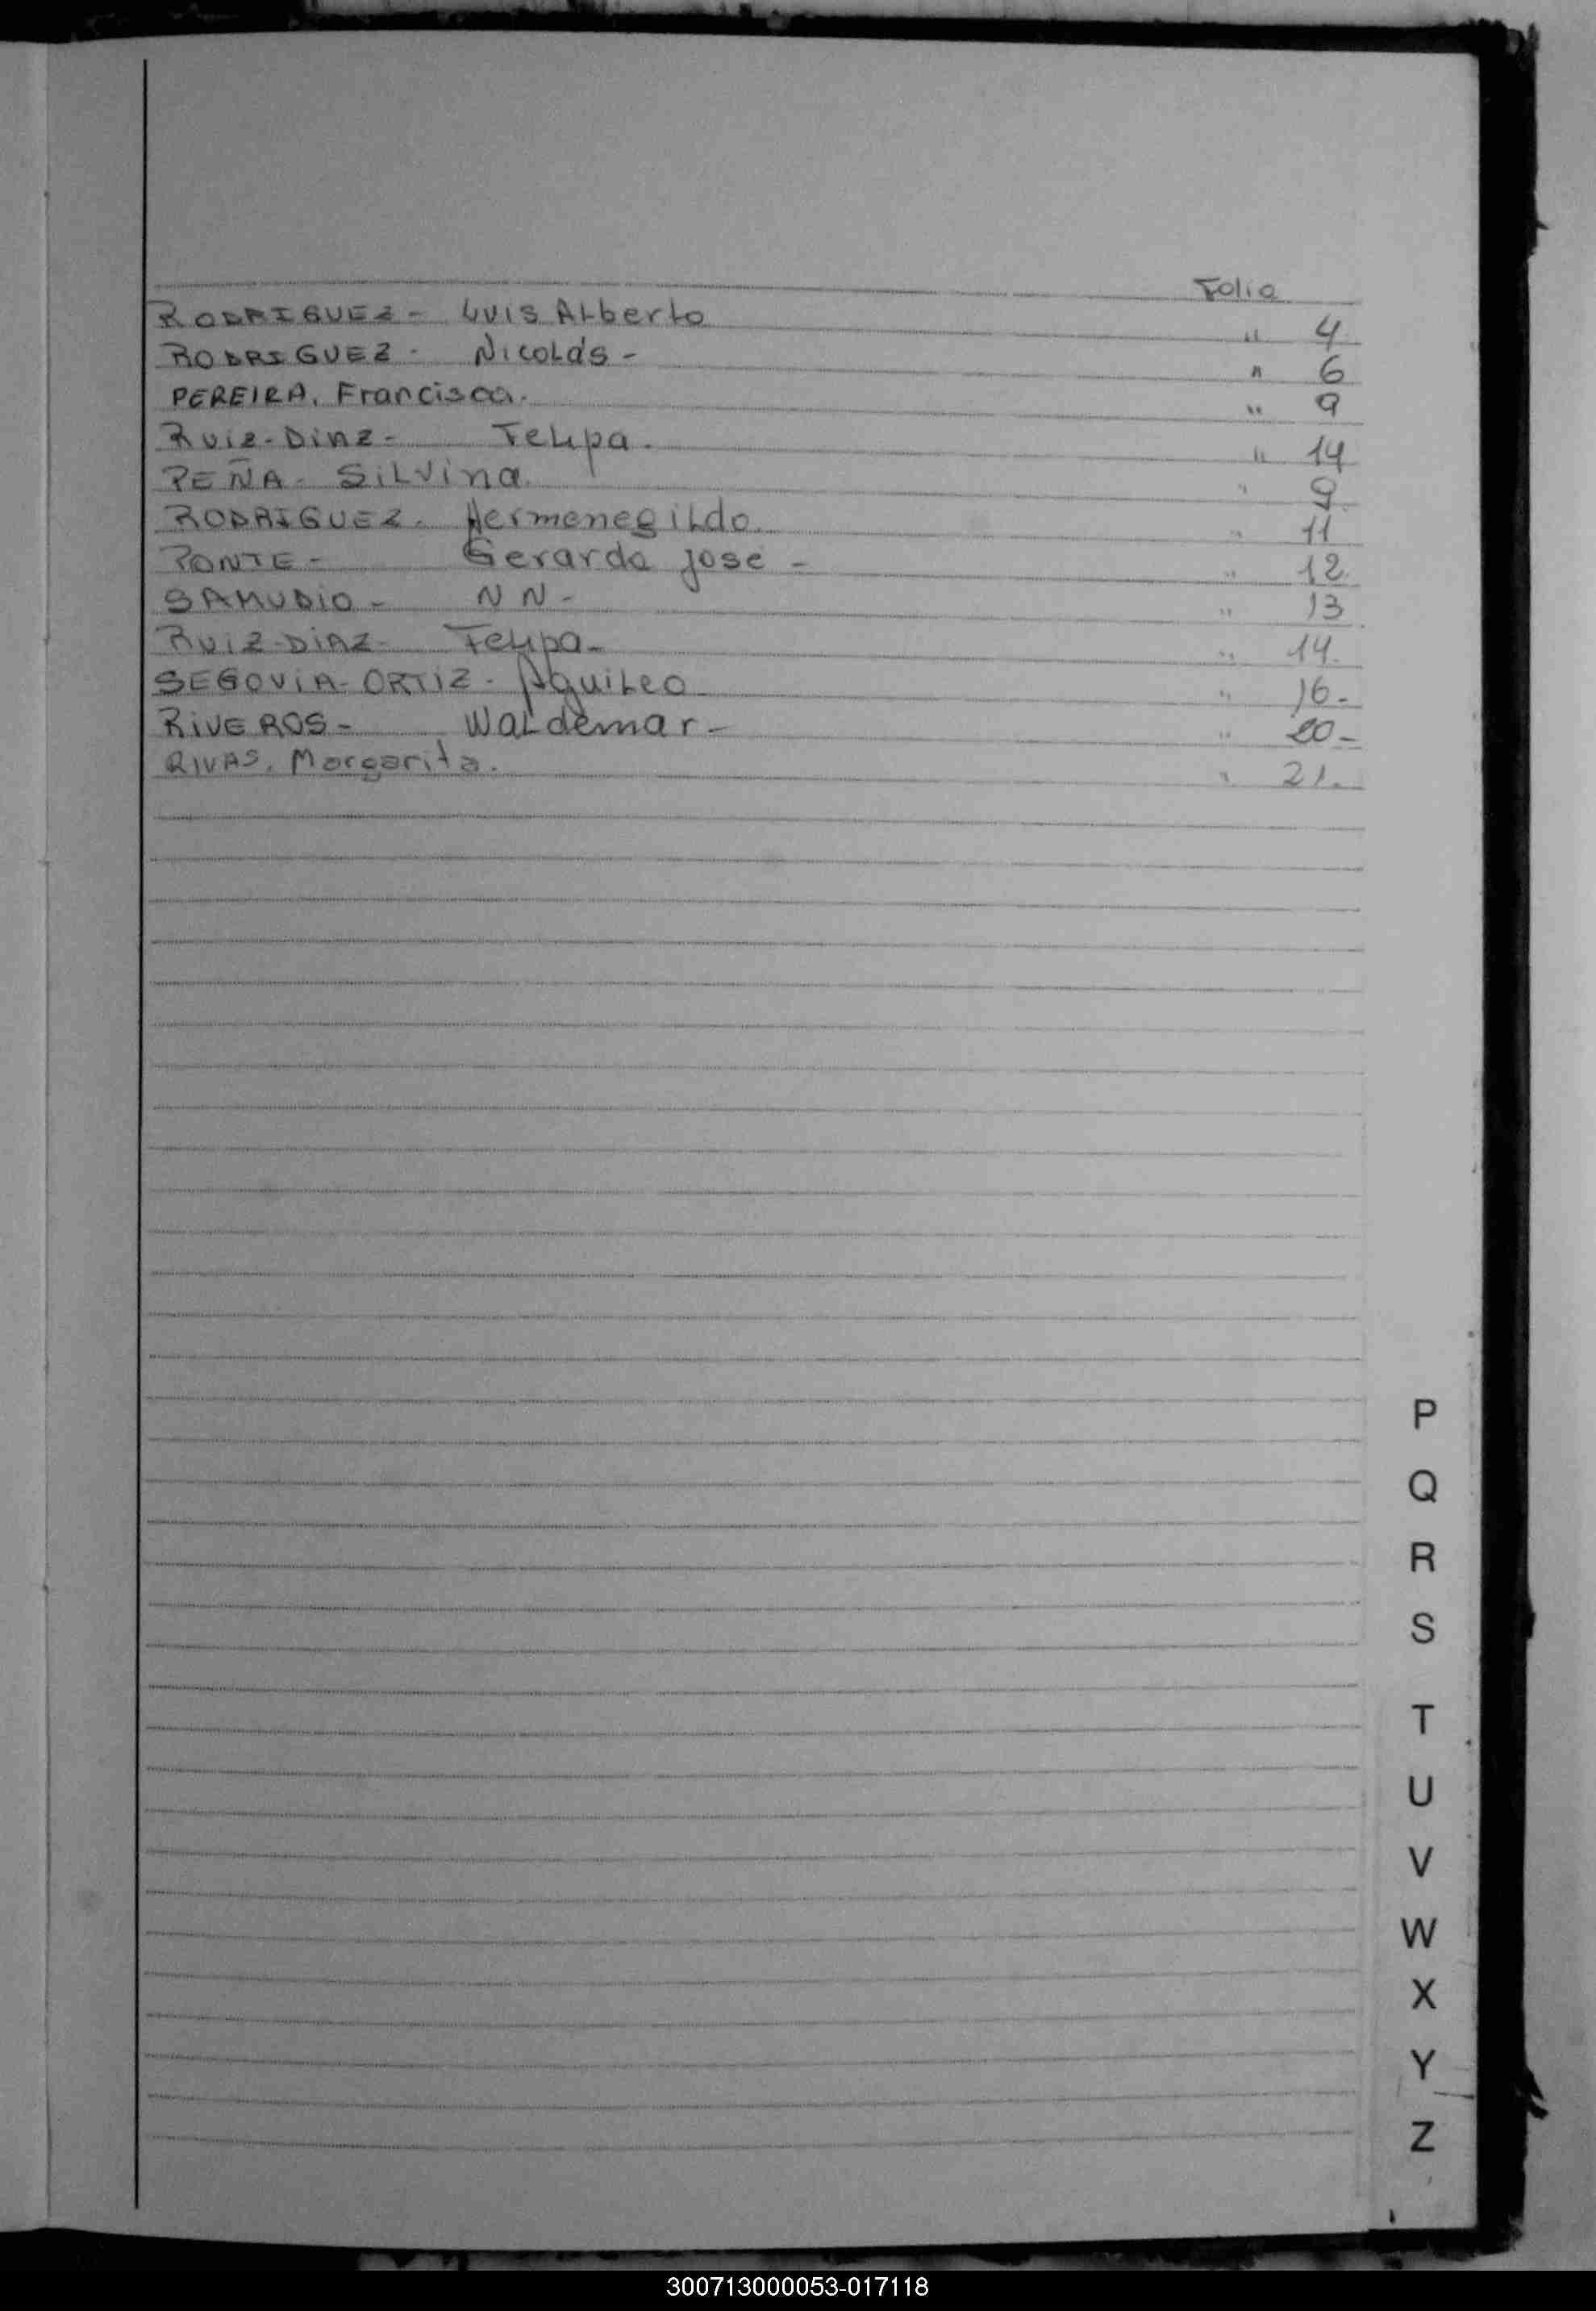 Folio
RODRIGUEZ - Luis Alberto " 4
RODRIGUEZ - Nicolás - " 6
PEREIRA, Francisca. " 9
Ruiz-Diaz - Felipa. " 14
PEÑA - Silvina. " 9
RODRIGUEZ - Hermenegildo. " 11
PONTE - Gerardo José - " 12.
SAMUDIO - N N - " 13
RUIZ-DIAZ - Felipa - " 14.
SEGOVIA-ORTIZ - Aguileo " 16 -
RIVEROS - Waldemar - " 20 -
RIVAS, Margarita. " 21.
P
Q
R
S
T
U
V
W
X
Y
Z
300713000053-017118